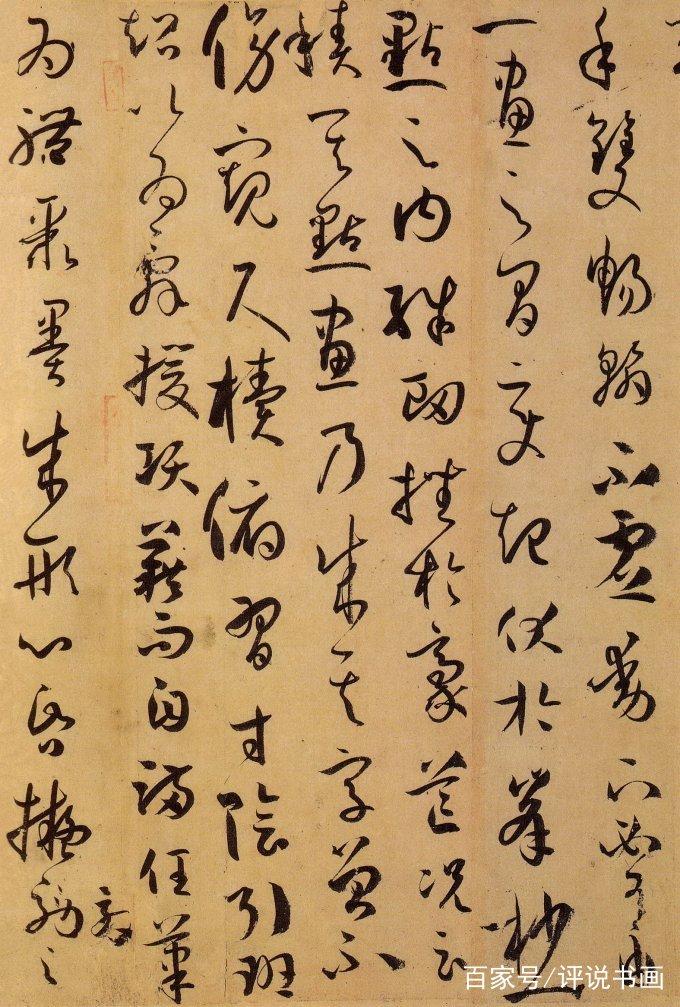 手雙暢翰不虛動下必有由
一畫之間變起伏於峯杪一
點之內殊衄挫於豪芒況云
積其點畫乃成其字曾不
傍窺尺牘俯習寸陰引班
超以為辭援項籍而自滿任筆
為體聚墨成形心昏擬效之
百家号/评说书画